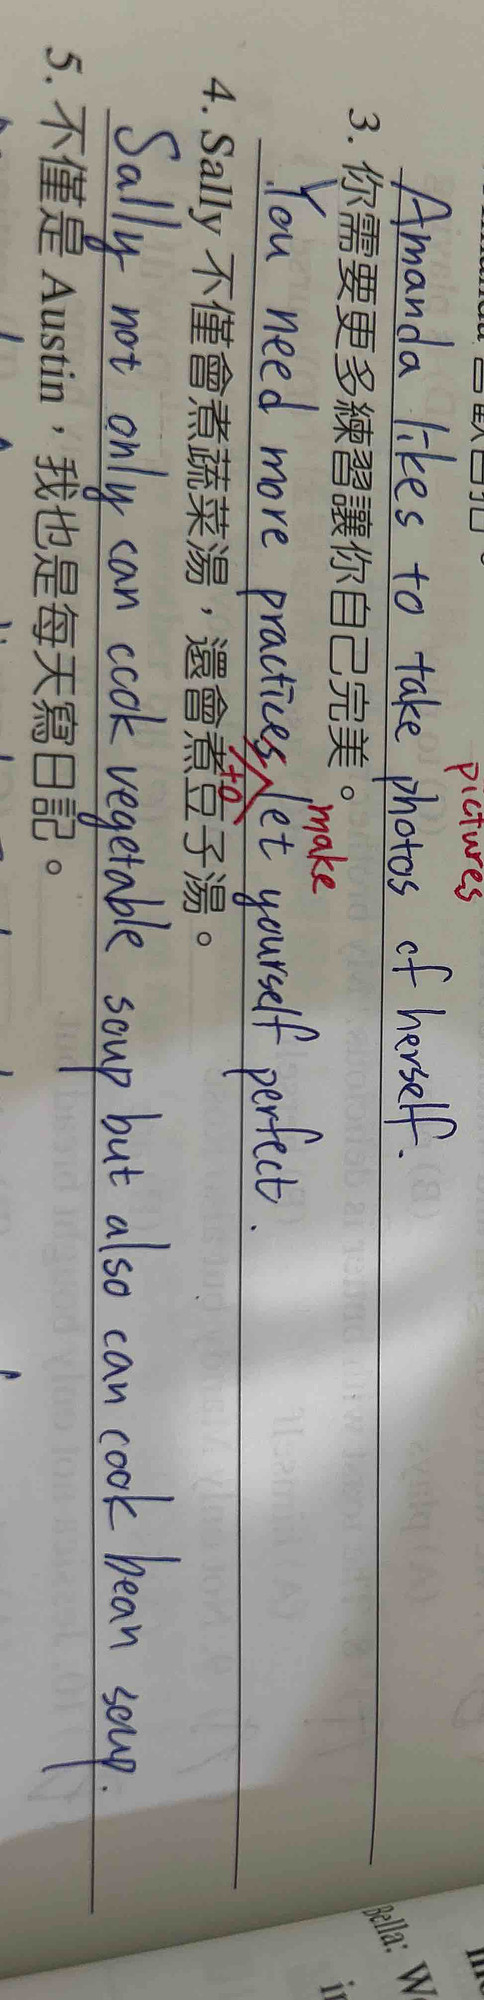 pictures
Amanda likes to take photos of herself.
3. 你需要更多練習讓你自己完美。
make
You need more practices let yourself perfect.
to
4. Sally 不僅會煮蔬菜湯，還會煮豆子湯。
Sally not only can cook vegetable soup but also can cook bean soup.
5. 不僅是 Austin，我也是每天寫日記。
Bella: We